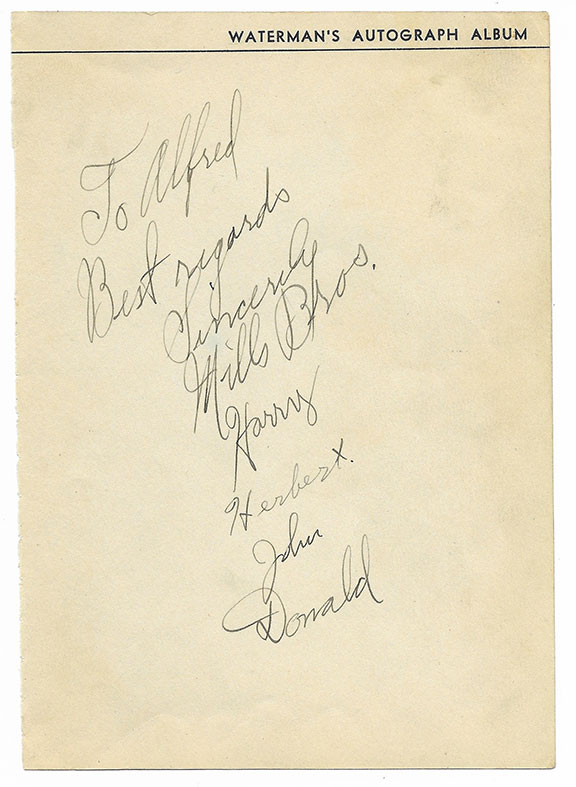 WATERMAN'S AUTOGRAPH ALBUM
To Alfred
Best regards
Sincerily
Mills Bros.
Harry
Herbert.
John
Donald